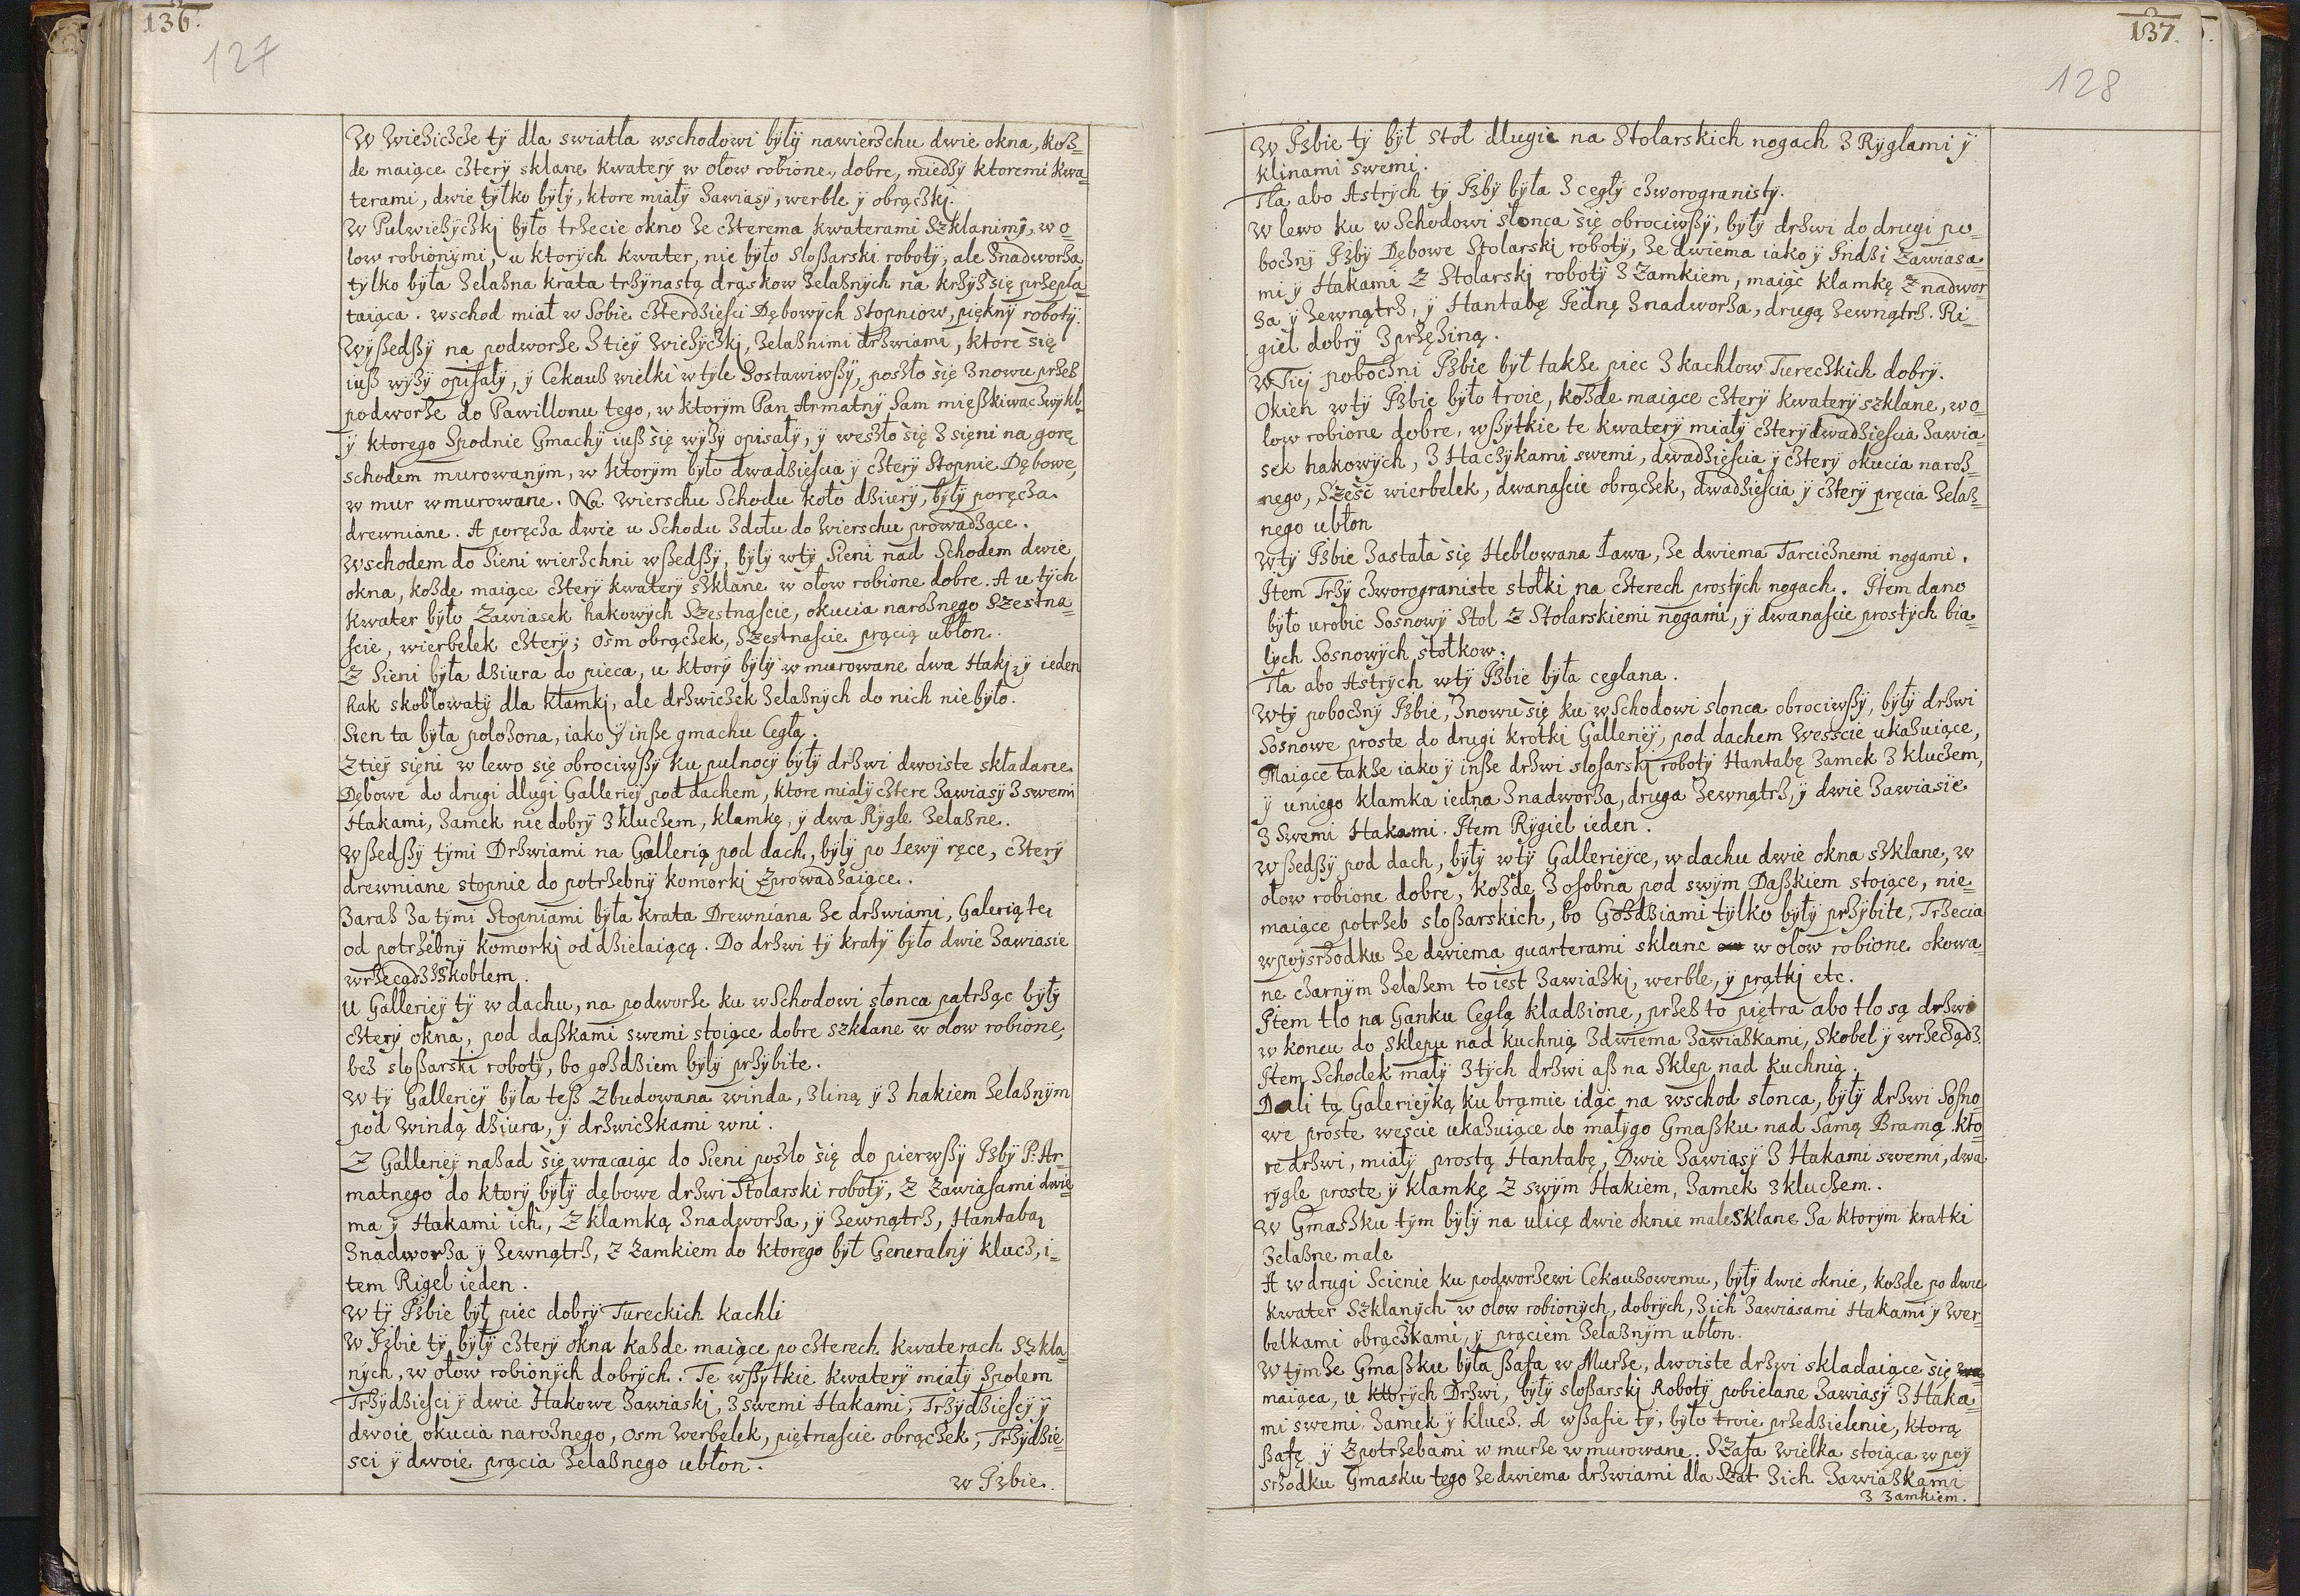 136.
127
W Wieżiczce ty dla swiatła wschodowi były nawierschu dwie okna, koż=
de maiące cztery sklane kwatery w ołow robione, dobre, miedzy ktoremi kwa=
terami, dwie tylko były, ktore miały zawiasy, werble y obrączkj.
W Pulwieżyczkj było trzecie okno ze czterema kwaterami Szklanimy, w o=
low robionymi, u ktorych kwater, nie było Sloßarski roboty, ale znadworza
tylko była żelazna krata trzynastą drąskow żelaznych na krzyż się przepla=
taiąca. wschod miał w Sobie czterdziesci Dębowych Stopniow, piękny roboty.
Wyßedßy na podworze z tiey Wieżyczkj, żelaznimi drzwiami, ktore się
iuß wyży opisały, y Cekauz wielki w tyle Zostawiwßy, poszło się znowu przez
podworze do Pawillonu tego, w ktorym Pan Armatny Sam mięßkiwac zwykl.
y ktorego Spodnie Gmachy iuß się wyży opisały, y weszło się z sięni na gorę
schodem murowanym, w ktorym było dwadziescia y cztery Stopnie Dębowe,
w mur wmurowane. Na wierschu Schodu koło dziury, były poręcza
drewniane. A poręcza dwie u Schodu zdołu do wierschu prowadzące.
Wschodem do Sieni wierzchni wßedßy, były wty Sieni nad Schodem dwie
okna, kożde maiące cztery kwatery szklane w ołow robione dobre. A u tych
kwater było Zawiasek hakowych Szestnascie, okucia narożnego Szestna=
scie, wierbelek cztery; osm obrączek, Szestnascie pręcia ubłon.
Z Sieni była dziura do pieca, u ktory były wmurowane dwa Hakj, y ieden
hak skoblowaty dla klamkj, ale drzwiczek żelaznych do nich nie było.
Sien ta była położona, iako y inße gmachu Cegłą.
Z tiey sięni w lewo się obrociwßy ku pulnocy były drzwi dwoiste składane
Dębowe do drugi dlugi Galleriey pod dachem, ktore miały cztere zawiasy z swemi
Hakami, zamek nie dobry z kluczem, klamkę, y dwa Rygle żelazne.
Wßedßy tymi Drzwiami na Gallerią pod dach, były po Lewy ręce, cztery
drewniane stopnie do potrzebny komorkj Zprowadzaiące.
Zaraz Za tymi Stopniami była krata Drewniana ze drzwiami, Galerią te
od potrzebny komorkj oddzielaiącą. Do drzwi ty kraty było dwie zawiasie
wrzecądz z Skoblem.
U Galleriey ty w dachu, na podworze ku wSchodowi słonca patrząc były
cztery okna, pod daßkami swemi stoiące dobre szklane w olow robione,
bez sloßarski roboty, bo gozdziem były przybite.
W ty Galleriey była teß Zbudowana winda, z liną y z hakiem żelaznym
pod windą dziura, y drzwiczkami wni.
Z Galleriey nazad się wracaiąc do Sieni poszło się do pierwßy Izby P. Ar=
matnego do ktory były dębowe drzwi Stolarski roboty, Z Zawiasami dwie=
ma y Hakami ich, Z klamką znadworza, y zewnątrz, Hantaba
znadworza y zewnątrz, Z Zamkiem do ktorego był Generalny klucz, i=
tem Rigel ieden.
W ty Izbie był piec dobry Tureckich kachli
W Izbie ty były cztery okna każde maiące po czterech kwaterach Szkla=
nych, w ołow robionych dobrych. Te wßytkie kwatery miały Spolem
Trzydziesci y dwie Hakowe zawiaski, z swemi Hakami, Trzydziescy y
dwoie okucia narożnego, osm werbelek, piętnascie obrączek, Trzydzie=
sci y dwoie pręcia żelaznego ubłon.
w Izbie.
137.
128
W Izbie ty był stol dlugie na Stolarskich nogach z Ryglami y
klinami swemi.
Tla abo Astrych ty Izby była z cegły czworogranisty.
W lewo ku wSchodowi słonca się obrociwßy, były drzwi do drugi po=
boczny Izby Dębowe Stolarskj roboty, ze dwiema iako y Indzi Zawiasa=
mi y Hakami Z Stolarskj roboty z Zamkiem, maiąc klamkę Z nadwor=
za y zewnątrz, y Hantabę Iednę znadworza, drugą zewnątrz. Ri=
giel dobry z przężiną.
W Tiej pobocżni Izbie był także piec z kachlow Tureczkich dobry.
Okien wty Izbie było troie, kożde maiące cztery kwatery szklane, w o=
low robione dobre, wßytkie te kwatery miały cztery dwadziescia zawia=
sek hakowych, z Haczykami swemi, dwadziescia y cztery okucia naroz=
nego, Szesc wierbelek, dwanascie obrączek, dwadziescia y cztery pręcia żelaz=
nego ubłon
Wty Izbie zastała się Heblowana Ława, ze dwiema Tarcicznemi nogami.
Item Trzy czworograniste stołki na czterech prostych nogach. Item dano
było urobic Sosnowy Stol Z Stolarskiemi nogami, y dwanascie prostych bia=
lych Sosnowych stołkow.
Tla abo Astrych wty Izbie była ceglana.
Wty poboczny Izbie, znowu się ku wSchodowi slonca obrociwßy, były drzwi
Sosnowe proste do drugi krotki Galleriey, pod dachem wesscie ukazuiące,
Maiące także iako y inße drzwi slosarskj roboty Hantabę zamek z kluczem,
y uniego klamka iedna znadworza, druga zewnątrz, y dwie zawiasie
z swemi Hakami. Item Rygiel ieden.
Wßedßy pod dach, były wty Gallerieyce, w dachu dwie okna szklane, w
ołow robione dobre, kożde z osobna pod swym Daßkiem stoiące, nie=
maiące potrzeb sloßarskich, bo Gozdziami tylko były przybite, Trzecia
wpoysrzodku ze dwiema quarterami sklane w ołow robione okowa=
ne czarnym żelazem to iest zawiazkj, werble, y prątkj etc.
Item tlo na Ganku Cegłą kladzione, przez to piętra abo tlo są drzwi
w koncu do sklepu nad kuchnią z dwiema zawiazkami, Skobel y wrzecządz
Item Schodek mały z tych drzwi aß na Sklep nad kuchnią.
Dali tą Galerieyką ku brąmie idąc na wschod słonca, były drzwi Sosno=
we proste wescie ukazuiące do małygo Gmaßku nad samą Bramą kto=
re drzwi, miały prostą Hantabę, Dwie zawiasy z Hakami swemi, dwa
rygle proste y klamkę Z swym Hakiem, zamek z kluczem.
W Gmaszku tym były na ulicę dwie oknie male Sklane za ktorym kratki
żelazne male
A w drugi Scienie ku podworzewi Cekauzowemu, były dwie oknie, kożde po dwu
kwater Szklanych w olow robionych, dobrych, z ich zawiasami Hakami y wer=
belkami obrączkami, y pręciem żelaznym ubłon.
W tymże Gmaßku była ßafa w Murze, dwoiste drzwi skladaiące się
maiąca, u ktorych Drzwi, były sloßarskj Roboty pobielane zawiasy z Haka=
mi swemi, zamek y klucz. A wßafie ty, było troie przedzielenie, ktorą
ßafę y Zpotrzebami w murze wmurowane. Szafa wielka stoiąca w poy
srzodku Gmasku tego ze dwiema drzwiami dla Szat z ich zawiazkami
z zamkiem.